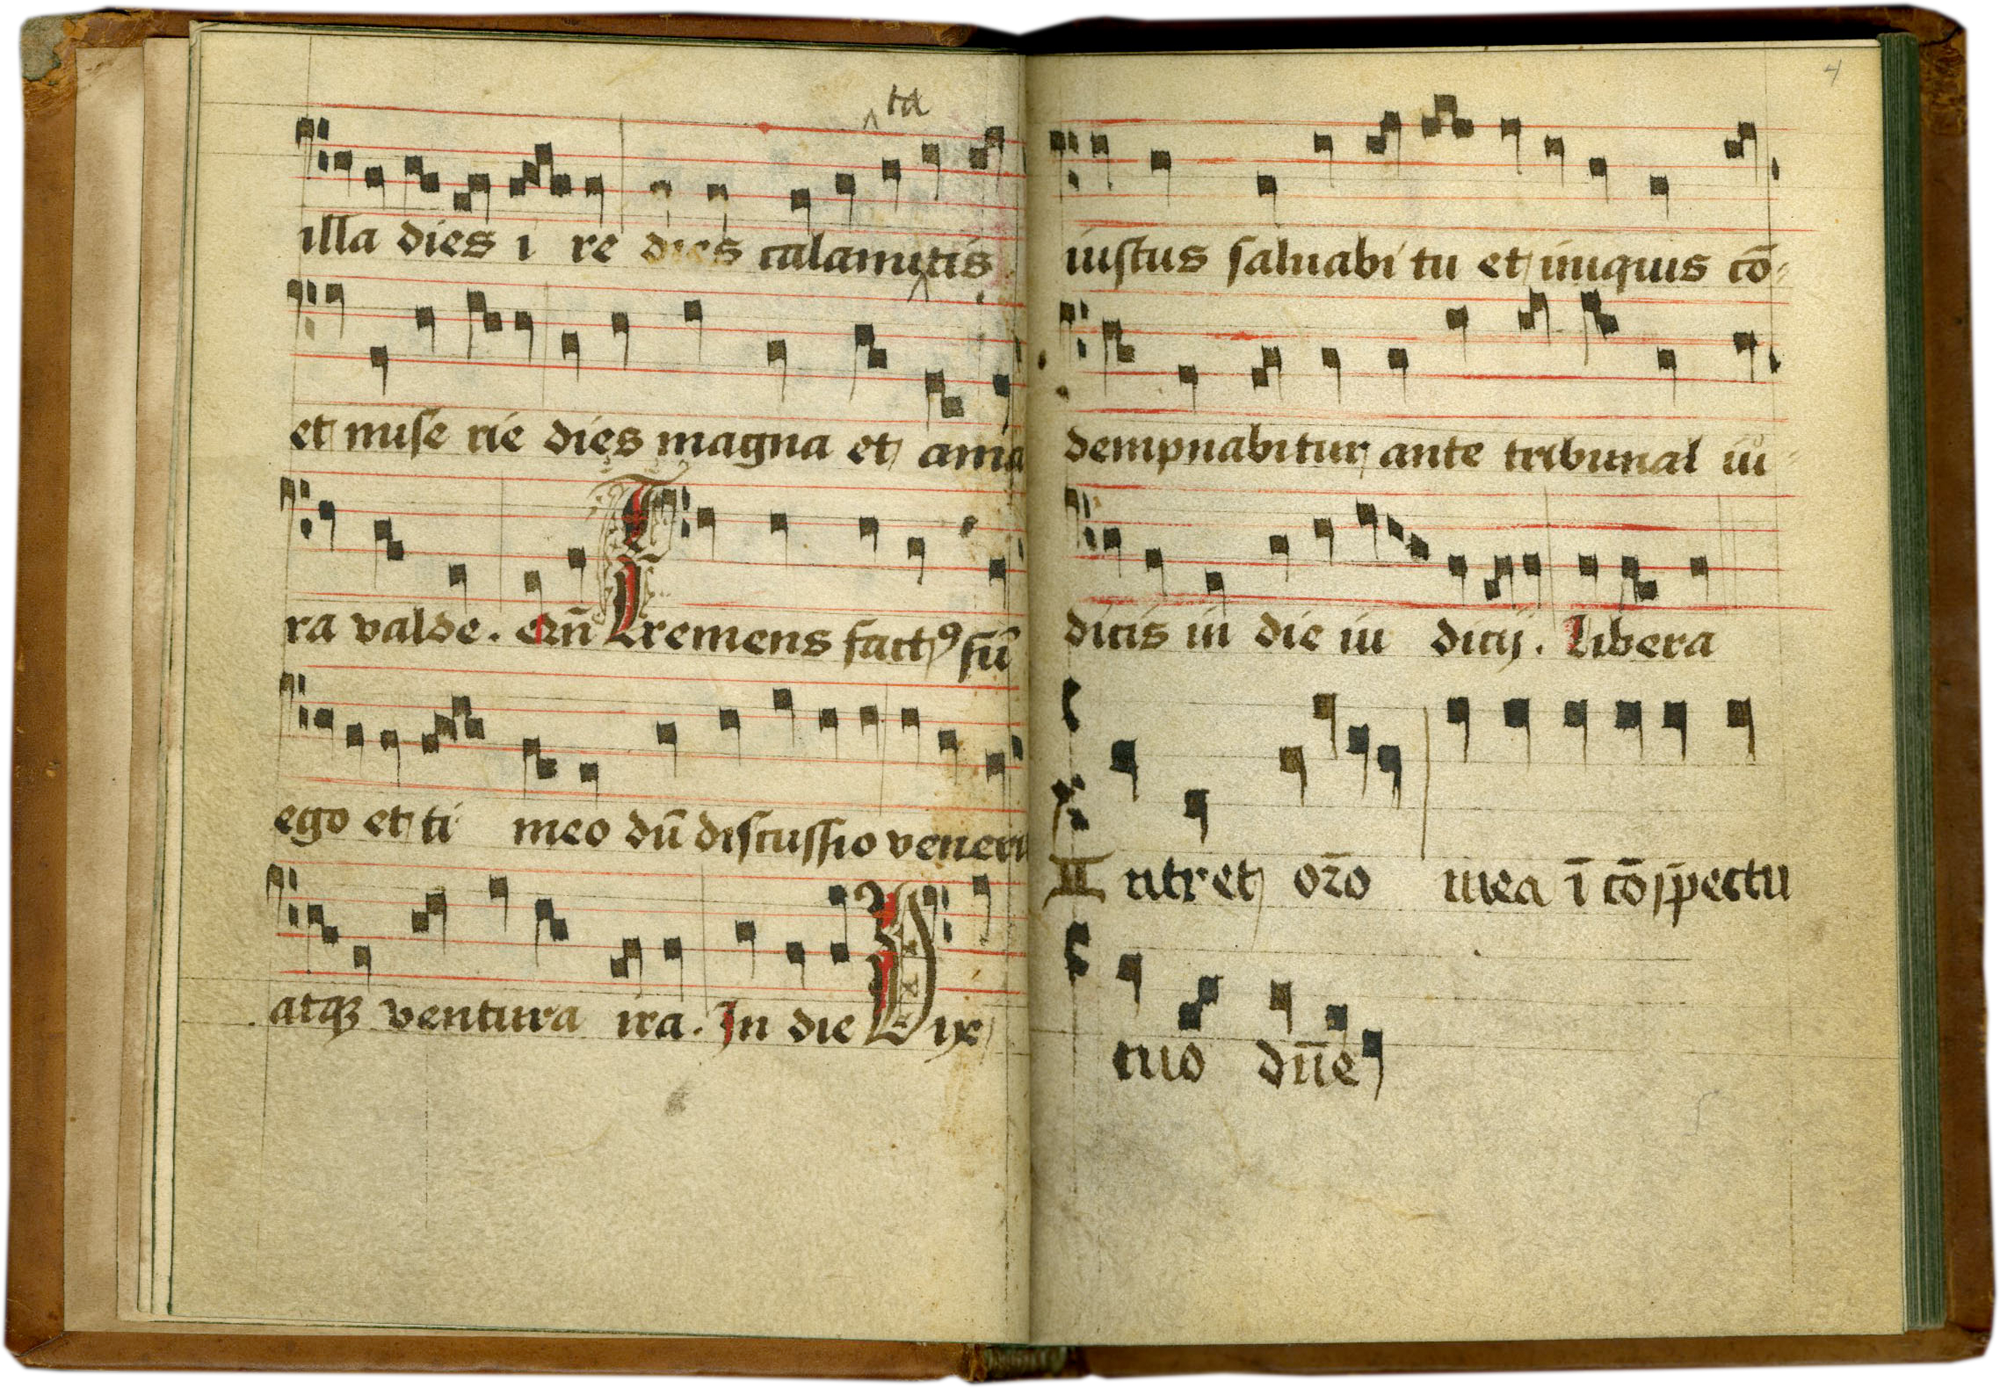 ta
illa dies i re dies calamitis
et mise rie dies magna et ama
ra valde. Qn̄ Tremens factꝰ sū
ego et ti meo dū discussio veneri
atqꝫ ventura ira. In die Dix
4
iustus saluabi tu et iniquis cō-
dempnabitur ante tribunal iu-
dicis in die iu dicij. Libera
Intret or̄o mea ī cōspectu
tuo dn̄e